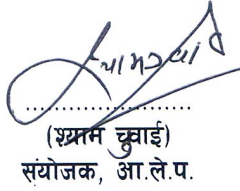 (श्याम चुवाई)
संयोजक, आ.ले.प.